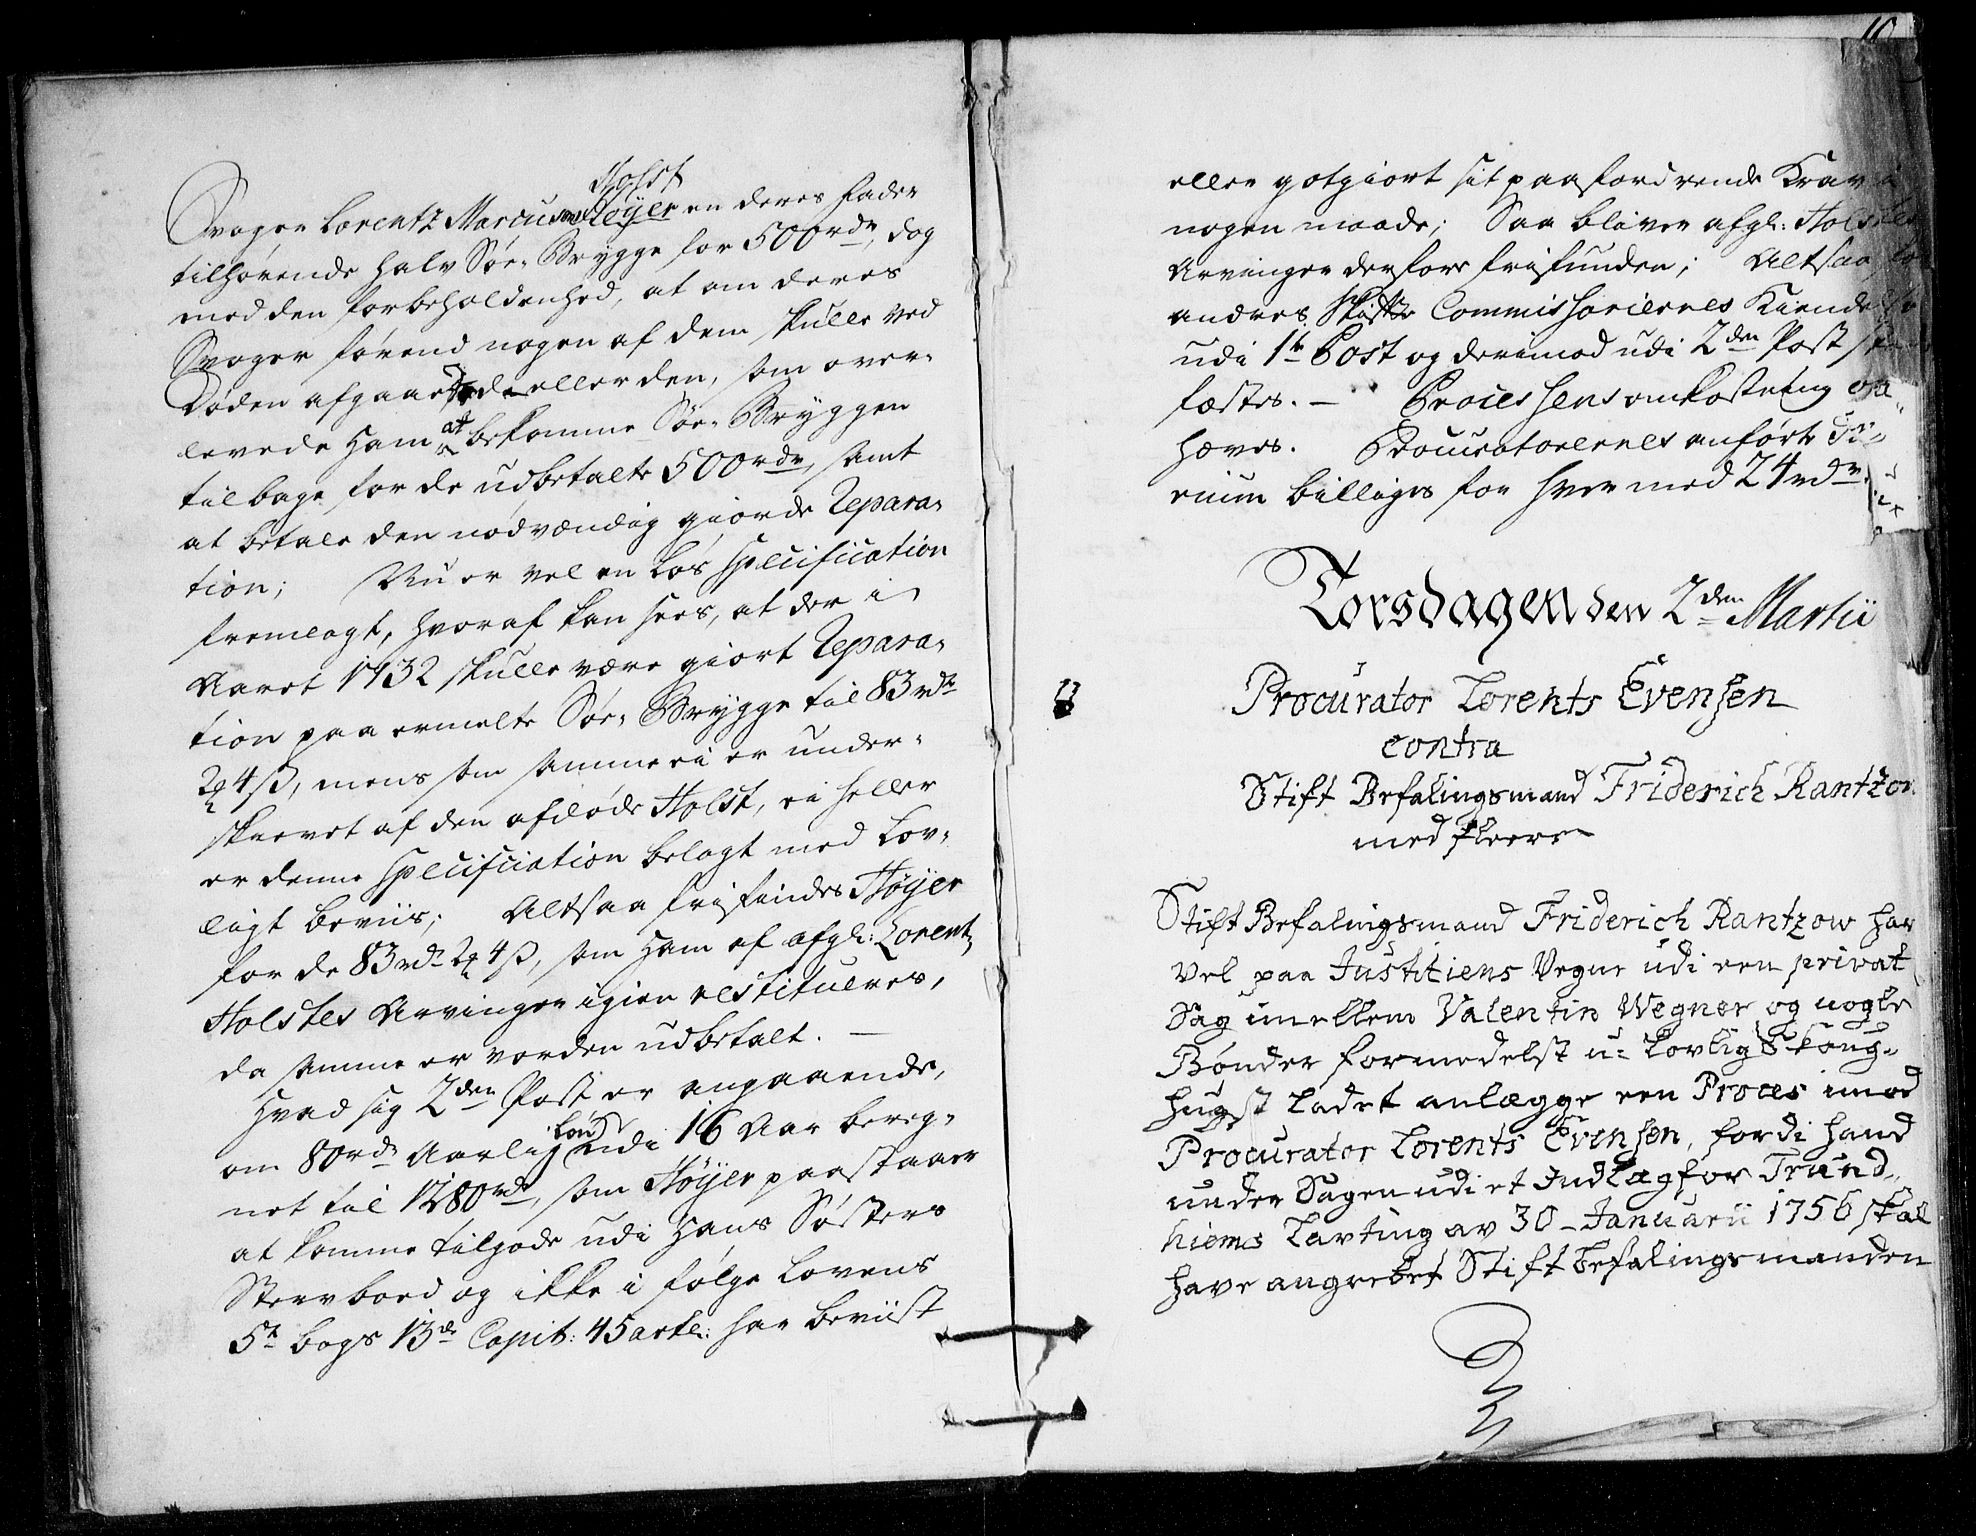 Holst
Svoger Lorentz Marcussen Høyer en deres Fader
tilhørende halv Søe-Brygge for 500 rdr, dog
med den forbeholdenhed, at om deres
Svoger førend nogen af dem skulle ved
Døden afgaae, da eller den, som over-
levede Ham at bekomme Søe-Bryggen
tilbage for de udbetalte 500 rdr, samt
at betale den nødvændig giorde Repara-
tion; Nu er vel en Løs Specification
fremlagt, hvoraf kan sees, at der i
Aaret 1732 skulle være giort Repara-
tion paa ermelte Søe-Brygge til 83 rdr
2 4 ß, mens som samme ei er under-
skrevet af den afdøde Holst, ei heller
er denne Specification belagt med Lov-
ligt Beviis; Altsaa frifindes Høyer
for de 83 rdr 2 4 ß, som Ham af afgl: Lorentz
Holstes Arvinger igien restitueres,
da samme er vorden udbetalt. —
Hvad sig 2den Post er angaaende,
om 80 rdr Aarlig Løn udi 16 Aar bereg-
net til 1280 rdr, som Høyer paastaaer
at komme tilgode udi Hans Søsters
Stervboed og ikke i følge Lovens
5t bogs 13de Capit: 45 artl: har beviist
10
eller gotgiort sit paafordrende Krav i
nogen maade; Saa bliver afgl: Holstes
Arvinger derfore frifunden; Altsaa
andres Skifte Commissoriernes Kiendelse
udi 1te Post og derimod udi 2den Post
fæstes. — Processens omkostning op-
hæves. Procuratorernes anførte
rium billiges for hver med 24 rdr.
Torsdagen den 2den Martii
Procurator Lorents Evensen
contra
Stift Befalingsmand Friderich Rantzow
med fleere
Stift Befalingsmand Friderich Rantzow har
vel paa Justitiens Vegne udi een privat
Sag imellem Valentin Wegner og nogle
Bønder formedelst u-Lovlig Skoug-
hugst Ladet anlægge een Proces imod
Procurator Lorents Evensen, fordi hand
under Sagen udi et Indlæg for Trund-
hiems Lavting av 30 Januarii 1756 skal
have angrebet Stift Befalingsmanden